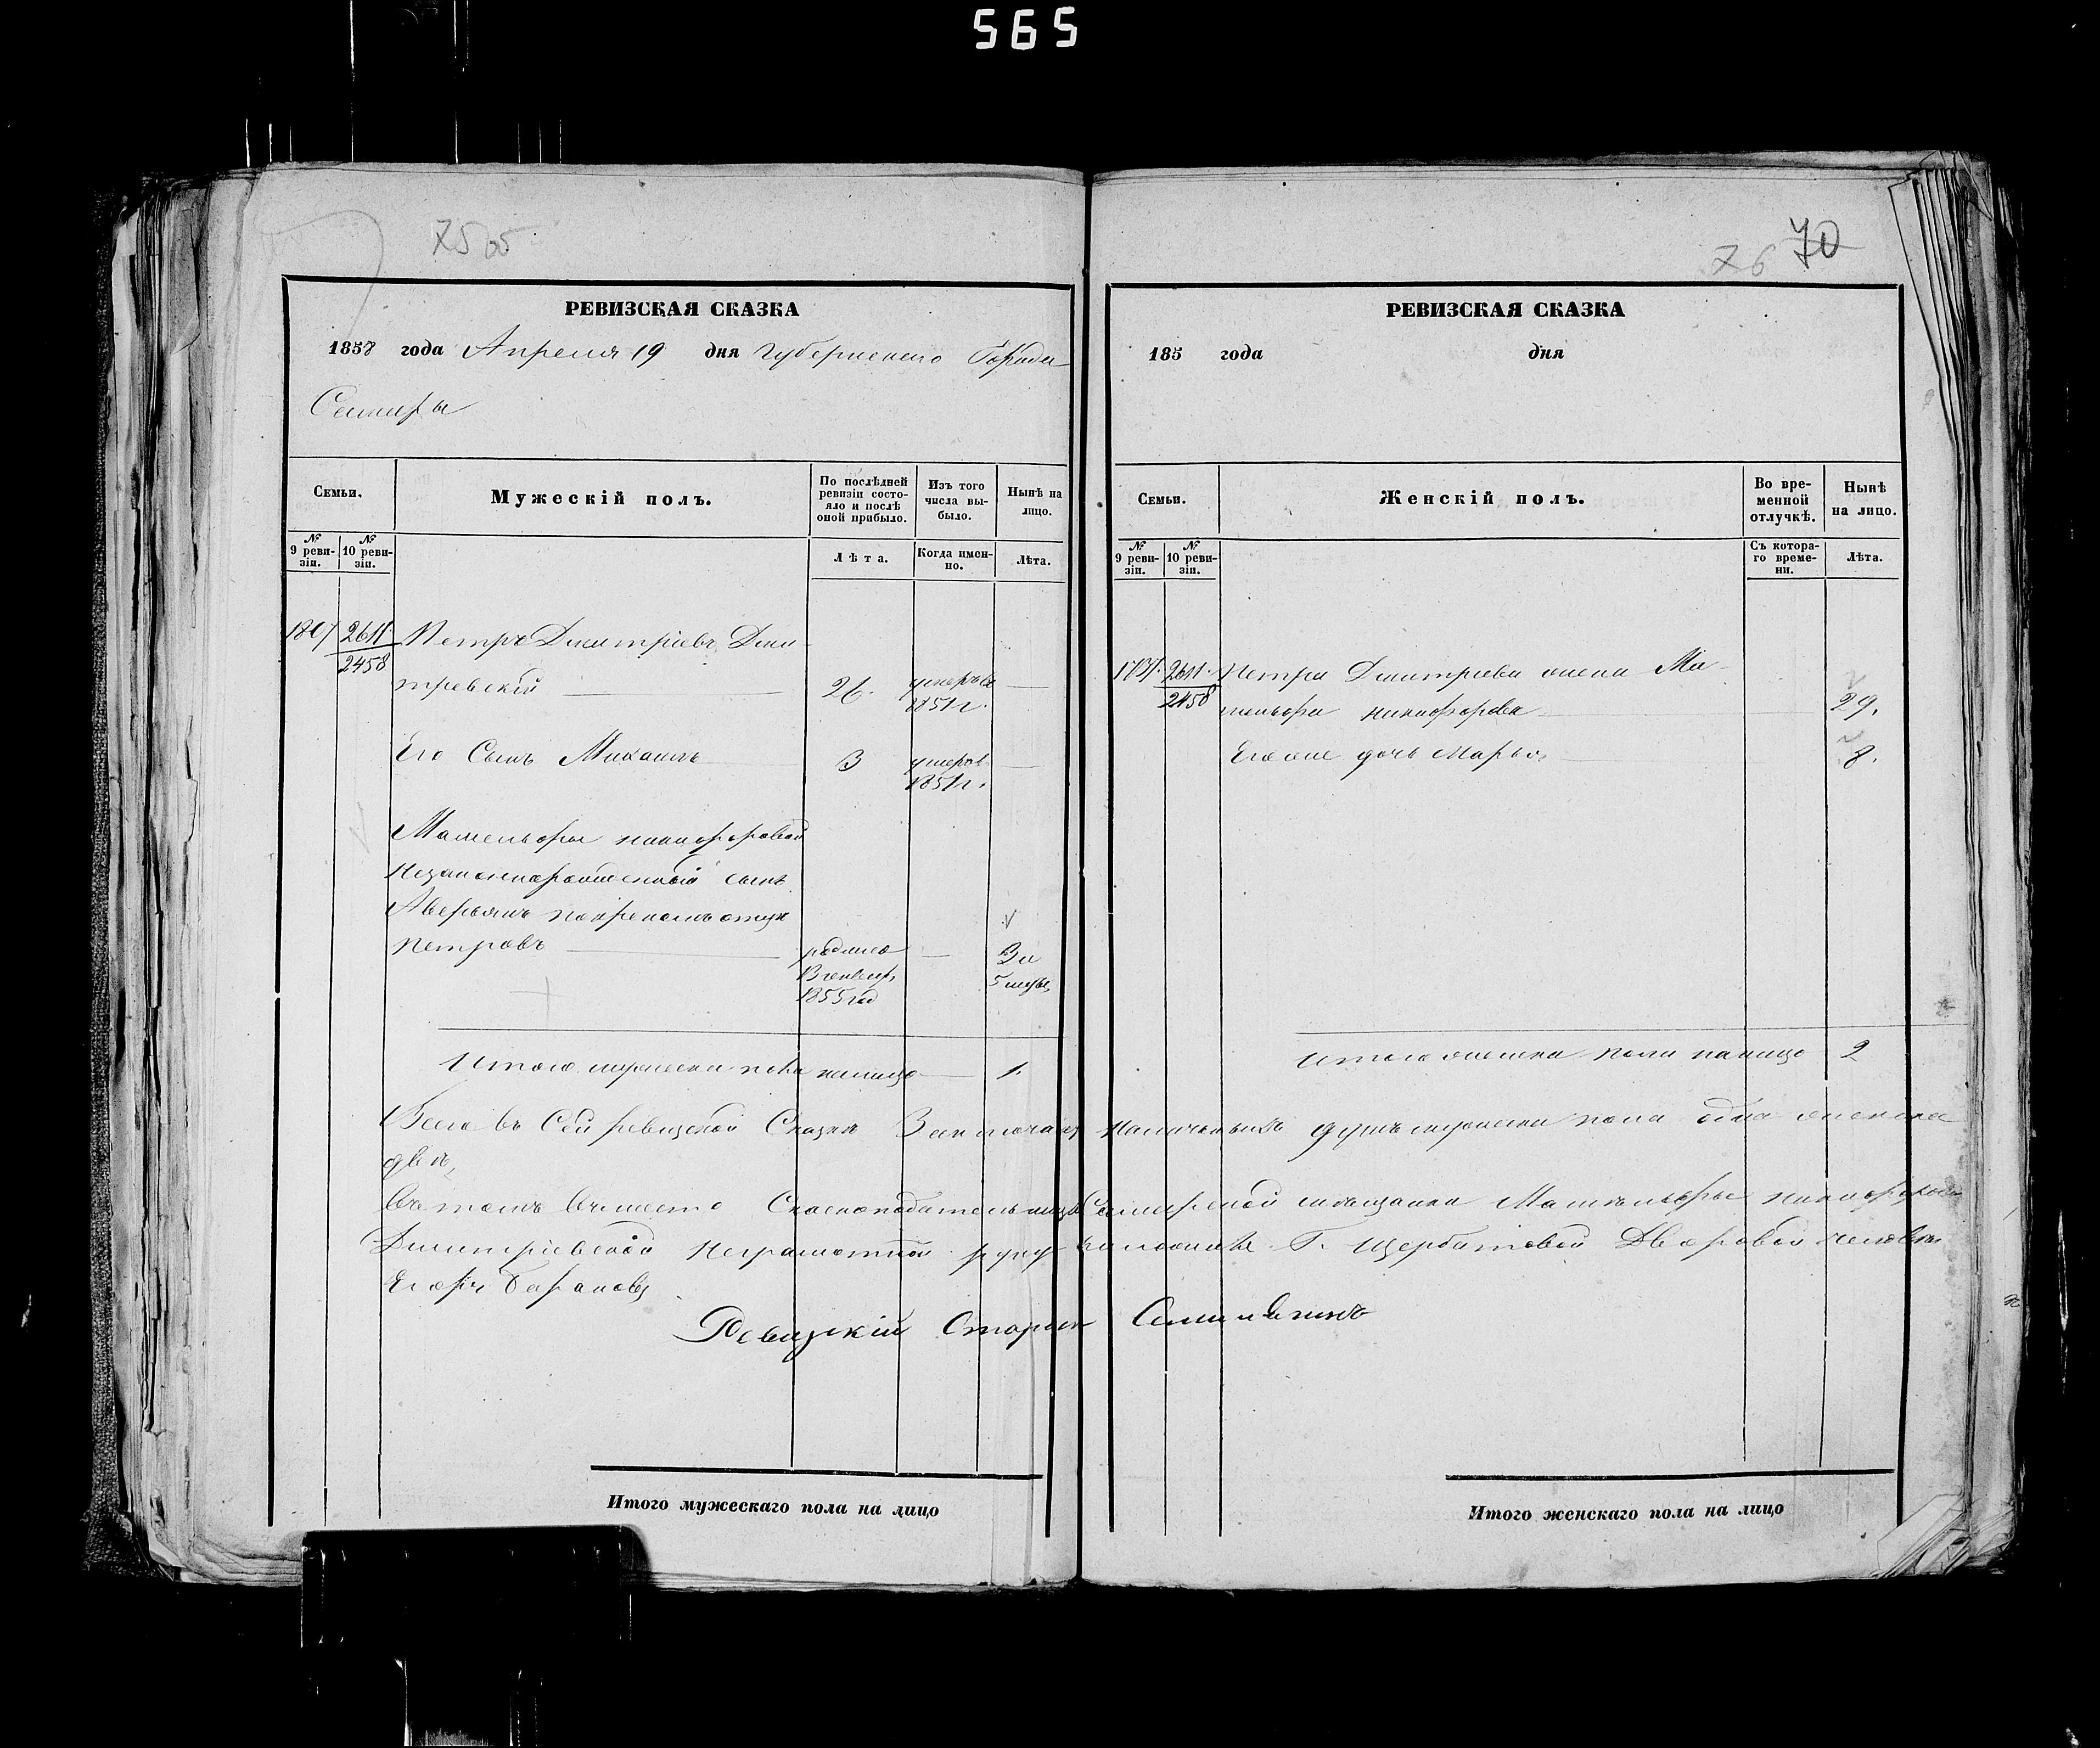 565
7565
РЕВИЗСКАЯ СКАЗКА
1858 года Апреля 19 дня Губернскаго Города
Самары
Семьи.
Мужескій полъ.
По послѣдней ревизіи состояло и послѣ оной прибыло.
Изъ того числа выбыло.
Нынѣ на лицо.
№ 9 ревизіи.
№ 10 ревизіи.
Лѣта.
Когда именно.
Лѣта.
2611
2458
Петръ Дмитріевъ Дми
тревскій 26. умеръ в
1851 г.
Его Сынъ Михаилъ 3 умеръ в
1851 г.
Матеньоры никифоровой
Незаконнорожденный сынъ
Аверьянъ покрестномъ отцу
Петровъ родился 3 и
5 мѣсяц
1855 год
Итого мужеска пола налицо 1.
Всего въ Сей ревизской Сказкѣ Заключает
двѣ,
Въ томъ вместо Сказкоподательницы
Дмитріевской неграмотной руку
Егоръ Барановъ
Ревизкій Староста
Итого мужескаго пола на лицо
76 70
РЕВИЗСКАЯ СКАЗКА
185 года дня
Семьи.
Женскій полъ.
Во временной отлучкѣ.
Нынѣ на лицо.
№ 9 ревизіи.
№ 10 ревизіи.
Съ котораго времени.
Лѣта.
2611.
2458
Петра Дмитриева жена Ма
никифорова 29.
Его же дочь Марья 8.
Итого женска пола налицо 2
наличныхъ душъ мужеска пола одна женска
Самарской мѣщанки никифоровой
приложилъ Г. Щербатовой Дворовой человекъ
Итого женскаго пола на лицо